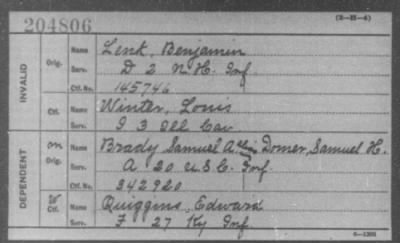 204806
(3-H-4)
INVALID
Orig. Name Link, Benjamin
Serv. D 2 N. H. Inf.
Ctf. No. 145746
Ctf. Name Winter, Louis
Serv. I 3 Ill Cav
DEPENDENT
Orig. Name Brady Samuel Alias Domer, Samuel H.
Serv. A 20 U S C. Inf.
Ctf. No. 342920
Ctf. Name Quiggins, Edward
Serv. F 27 Ky Inf.